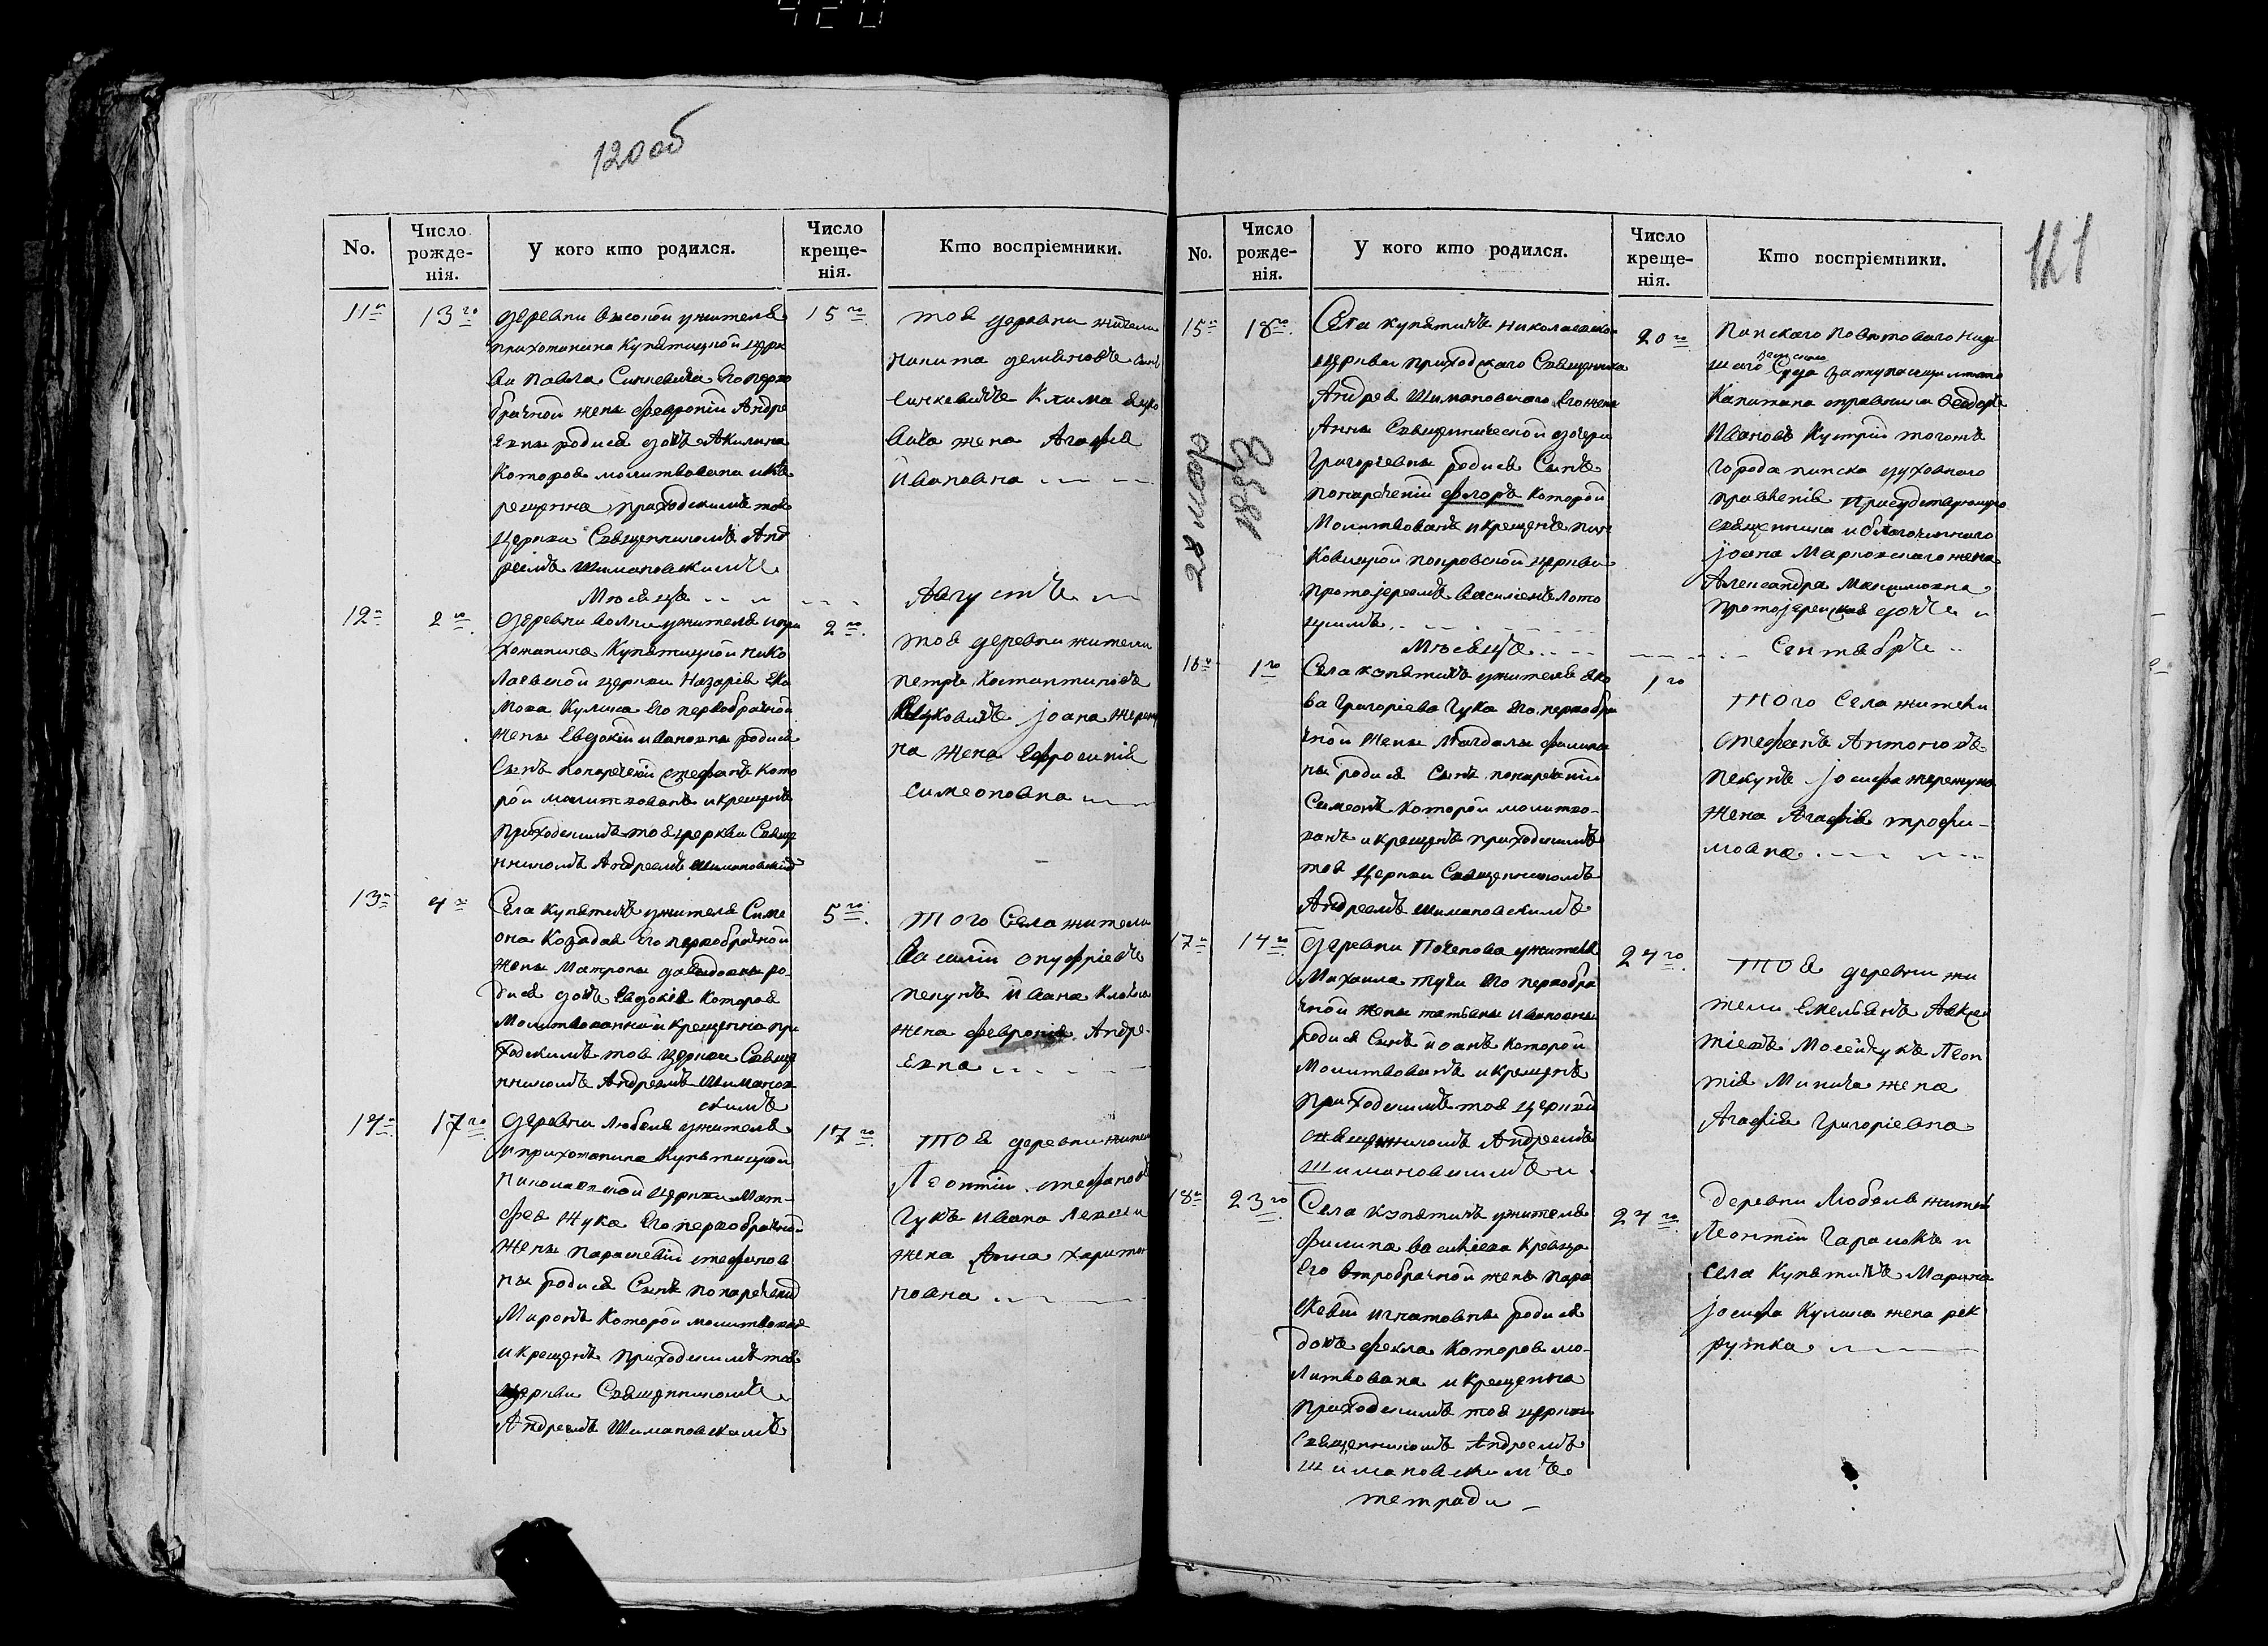 420
120 об
No.
Число рожде-нія.
У кого кто родился.
Число креще-нія.
Кто воспріемники.
11
13го
деревни высокой ужителя
прихожанина Купятицкой церк
ви Павла Синкевича его перво
брачной жены Февроніи Андре
евны родися дочь Акилина
которая молитвована и кре
щенна приходскимъ тоя
церкви Священникомъ Анд
реемъ Шимановскимъ
15го
тоя деревни жители
Никита
Клима
жена Агафія
Ивановна
Мѣсяцъ
Августъ
12
2го
деревни ужителя и при
хожанина Купятицкой Нико
лаевской церкви Назарія Яко
мова Кулика его первобрачной
жены Евдокіи Ивановны родися
Сынъ по нареченіи Стефанъ кото
рой молитвованъ и крещенъ
приходскимъ тоя церкви Свяще
нникомъ Андреемъ Шимановским
2го
тоя деревни жители
Петръ Костантиновъ
Іоана
жена Ефросинія
Симеоновна
13
4го
Села Купятичъ ужителя Симе
она Козадая его первобрачной
жены Матроны Давидовны ро-
дися дочь Евдокія которая
Молитвованна и крещенна при
ходскимъ тоя церкви Свяще
нникомъ Андреемъ Шиманов
скимъ
5го
того Села жители
Василій Онуфріевъ
Пекунъ Ивана
жена Февронія Андре-
евна
14
17го
деревни Любеля ужителя
и прихожанина Купятицкой
Николаевской церкви Мат-
фея Жука его первобрачной
жены Параскевіи Стефанов
ны родися Сынъ по нареченіи
Миронъ которой молитвован
и крещенъ приходскимъ тоя
церкви Священникомъ
Андреемъ Шимановскимъ
17го
тоя деревни жители
Леонтій Стефановъ
Гукъ Ивана
жена Анна Харито
новна
121
No.
Число рожде-нія.
У кого кто родился.
Число креще-нія.
Кто воспріемники.
15
18го
Села Купятичъ Николаевской
церкви приходскаго Священника
Андрея Шимановскаго его жены
Анны Священнической дочери
Григоріевны родися Сынъ
по нареченіи Флоръ которой
Молитвованъ и крещенъ Пин
ковицкой Покровской церкви
протоіереемъ Василіемъ Лото
цкимъ
20го
Пинскаго Повѣтоваго Ниж-
шаго Земскаго Суда заступающій мѣсто
Капитана исправника Феодоръ
Ивановъ тогожъ
города Пинска духовнаго
правленія Присудствующаго
священника и благочиннаго
Іоана жена
Александра Максимовна
протоіерейская дочь
28 мая
1895
Мѣсяцъ
Сентябръ
16
1го
Села Купятичъ ужителя Яко
ва Григоріева Гука его первобра
чной жены Магдалы Филипов
ны родися Сынъ по нареченіи
Симеонъ которой молитво-
ванъ и крещенъ приходскимъ
тоя церкви Священникомъ
Андреемъ Шимановскимъ
1го
того Села жители
Стефанъ Антоновъ
Пекунъ Іосифа
жена Агафія Трофи-
мовна
17
14го
деревни Почепова ужителя
Михаила его первобра
чной жены Татіаны Ивановны
родися Сынъ Іоанъ которой
Молитвованъ и крещенъ
приходскимъ тоя церкви
священникомъ Андреемъ
Шимановскимъ
24го
тоя деревни жи
тели Емельянъ Авксен
тіевъ Леон
тія Минича жена
Агафія Григоріевна
18
23го
Села Купятичъ ужителя
Филипа Василіева Кревца
его втробрачной жены Пара
скевіи Игнатовны родися
дочь Фекла которая мо-
литвована и крещенна
приходскимъ тоя церкви
Священникомъ Андреемъ
Шимановскимъ
24го
деревни Любеля жители
Леонтій и
села Купятичъ Марина
Іосифа Кулика жена рек
рутка
тетради